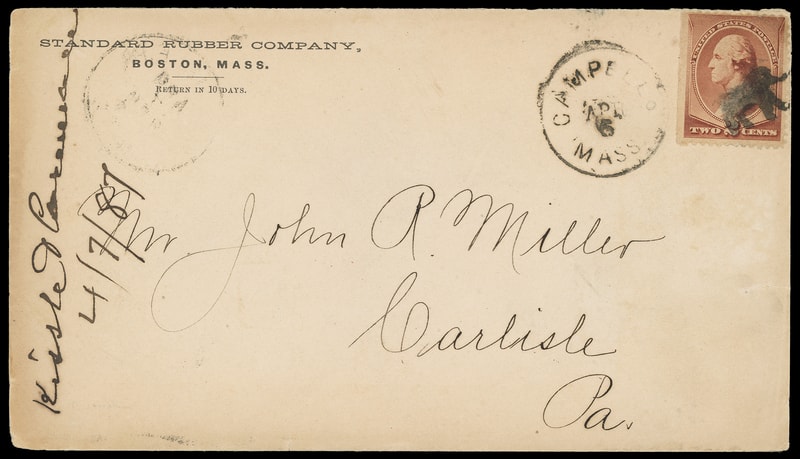 STANDARD RUBBER COMPANY,
BOSTON, MASS.
RETURN IN 10 DAYS.
CAMPELLO
APR
6
MASS
UNITED STATES POSTAGE
TWO CENTS
4/7/87
Mr. John R. Miller
Carlisle
Pa.